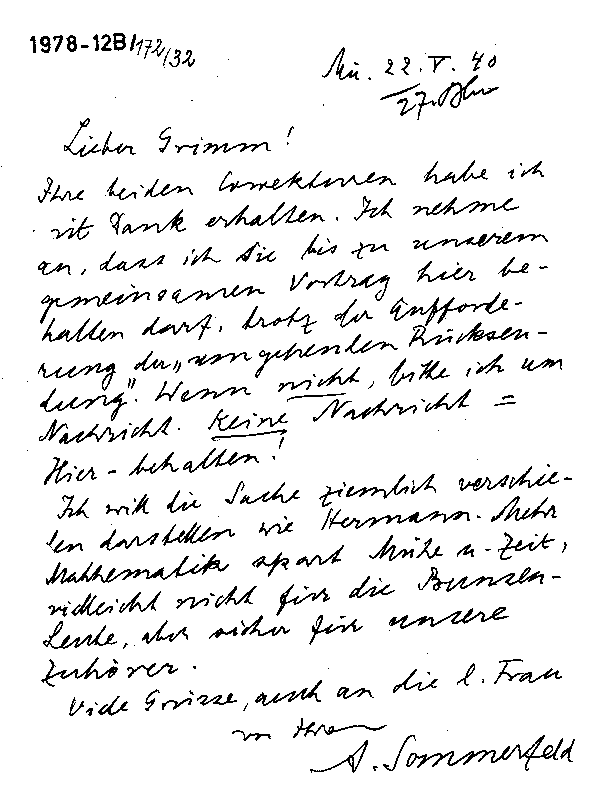 1978-12B/172/32
Mü. 22. V. 40
27.
Lieber Grimm!
Ihre beiden Correkturen habe ich
mit Dank erhalten. Ich nehme
an, dass ich sie bis zu unserem
gemeinsamen Vortrag hier be-
halten darf, trotz der Aufforde-
rung der „umgehenden Rücksen-
dung". Wenn nicht, bitte ich um
Nachricht. Keine Nachricht =
Hier-behalten!
Ich will die Sache ziemlich verschie-
den darstellen wie Hermann. Mehr
Mathematik spart Mühe u. Zeit,
vielleicht nicht für die Bunsen-
Leute, aber sicher für unsere
Zuhörer.
Viele Grüsse, auch an die l. Frau
von Ihrem
A. Sommerfeld